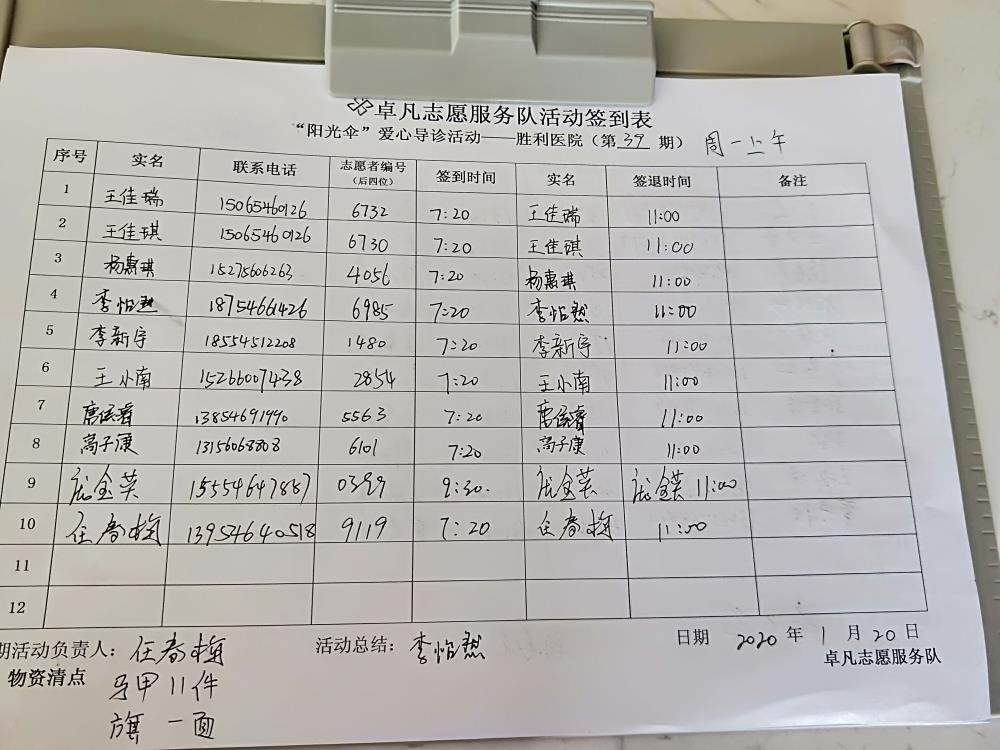 卓凡志愿服务队活动签到表
“阳光伞”爱心导诊活动——胜利医院（第 39 期） 周一上午
序号 实名 联系电话 志愿者编号（后四位） 签到时间 实名 签退时间 备注
1 王佳瑞 15065460126 6732 7:20 王佳瑞 11:00
2 王佳琪 15065460126 6730 7:20 王佳琪 11:00
3 杨惠琪 15275606263 4056 7:20 杨惠琪 11:00
4 李怡然 18754661426 6985 7:20 李怡然 11:00
5 李新宇 18554512208 1480 7:20 李新宇 11:00
6 王小南 15266007438 2854 7:20 王小南 11:00
7 13854691990 5563 7:20 11:00
8 高子康 13156068008 6101 7:20 高子康 11:00
9 庞金英 15554647857 0399 9:30. 庞金英 庞金英 11:00
10 任春梅 13954640518 9119 7:20 任春梅 11:00
11
12
期活动负责人：任春梅 活动总结：李怡然 日期 2020 年 1 月 20 日
物资清点 马甲 11件 卓凡志愿服务队
旗 一面